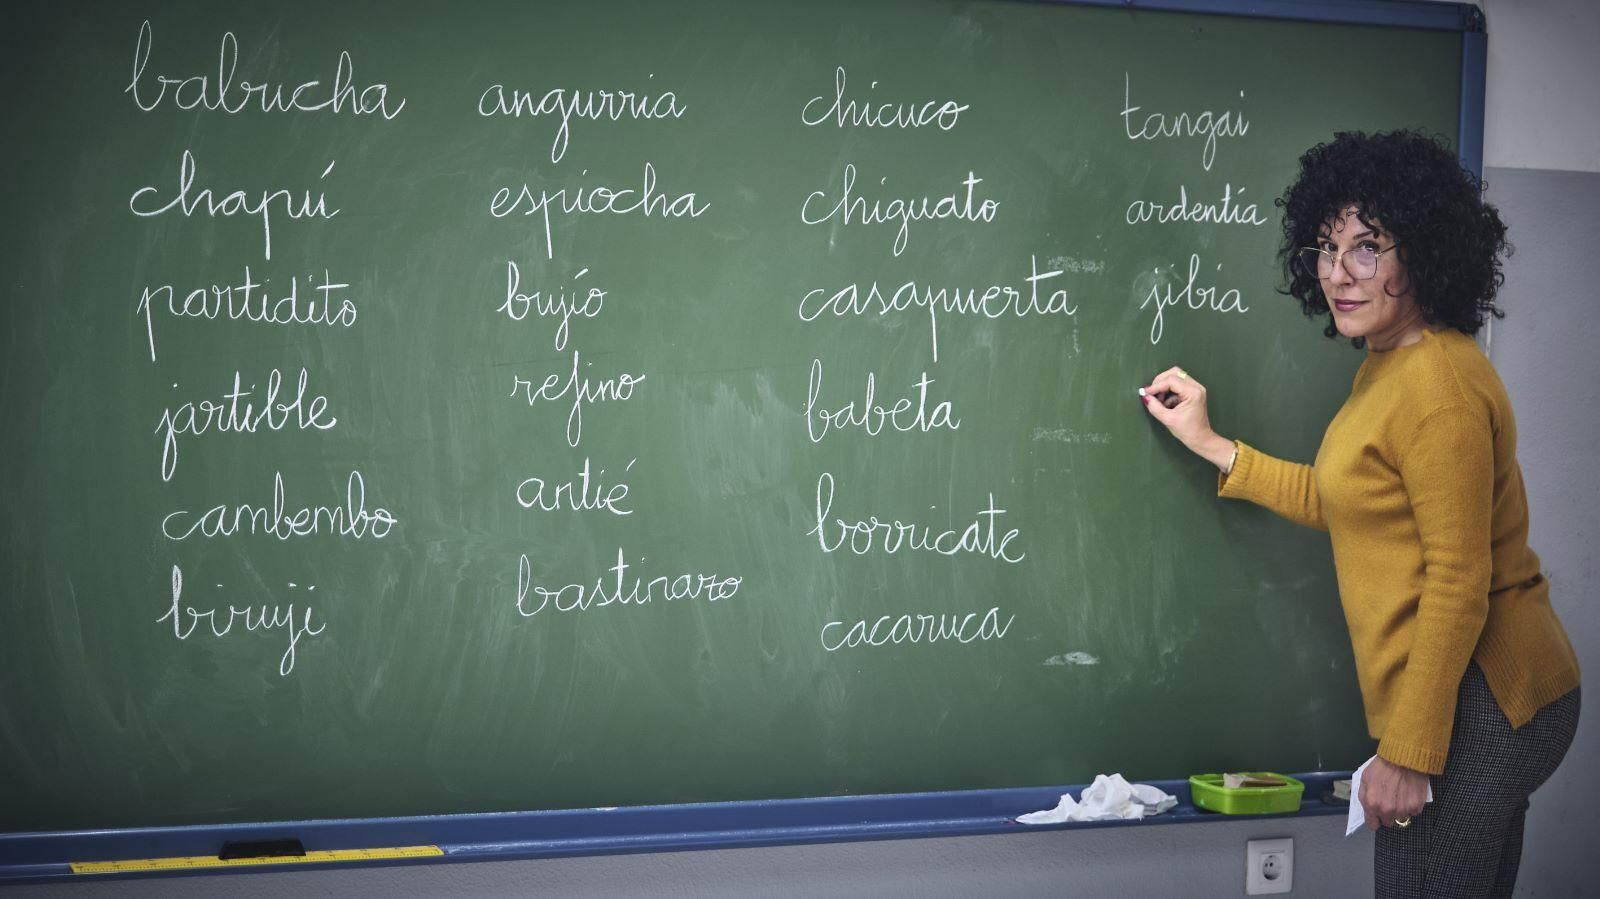 babucha
chapú
partidito
jartible
cambembo
biruji
angurria
espiocha
bujío
refino
antié
bastinazo
chicuco
chiguato
casapuerta
babeta
borricate
cacaruca
tangai
ardentía
jibia